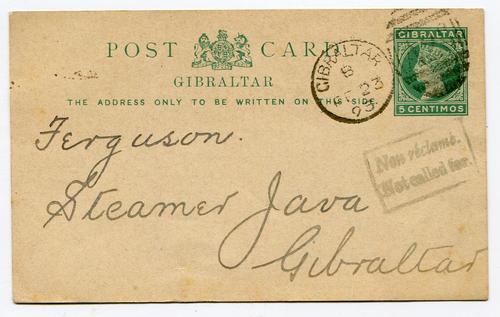 POST CARD
GIBRALTAR
THE ADDRESS ONLY TO BE WRITTEN ON THIS SIDE.
GIBRALTAR
5 CENTIMOS
GIBRALTAR
B
23
93
Non réclamé.
Not called for.
Ferguson.
Steamer Java
Gibraltar